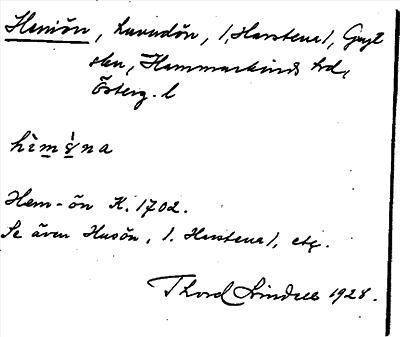 Hemön, huvudön, /, Harstena/, Gryt
skn, Hammarkinds hd,
Österg. l
hèmǿna
Hem-ön K. 1702.
Se även Husön, /. Harstena/, etc.
Thord Lindell 1928.